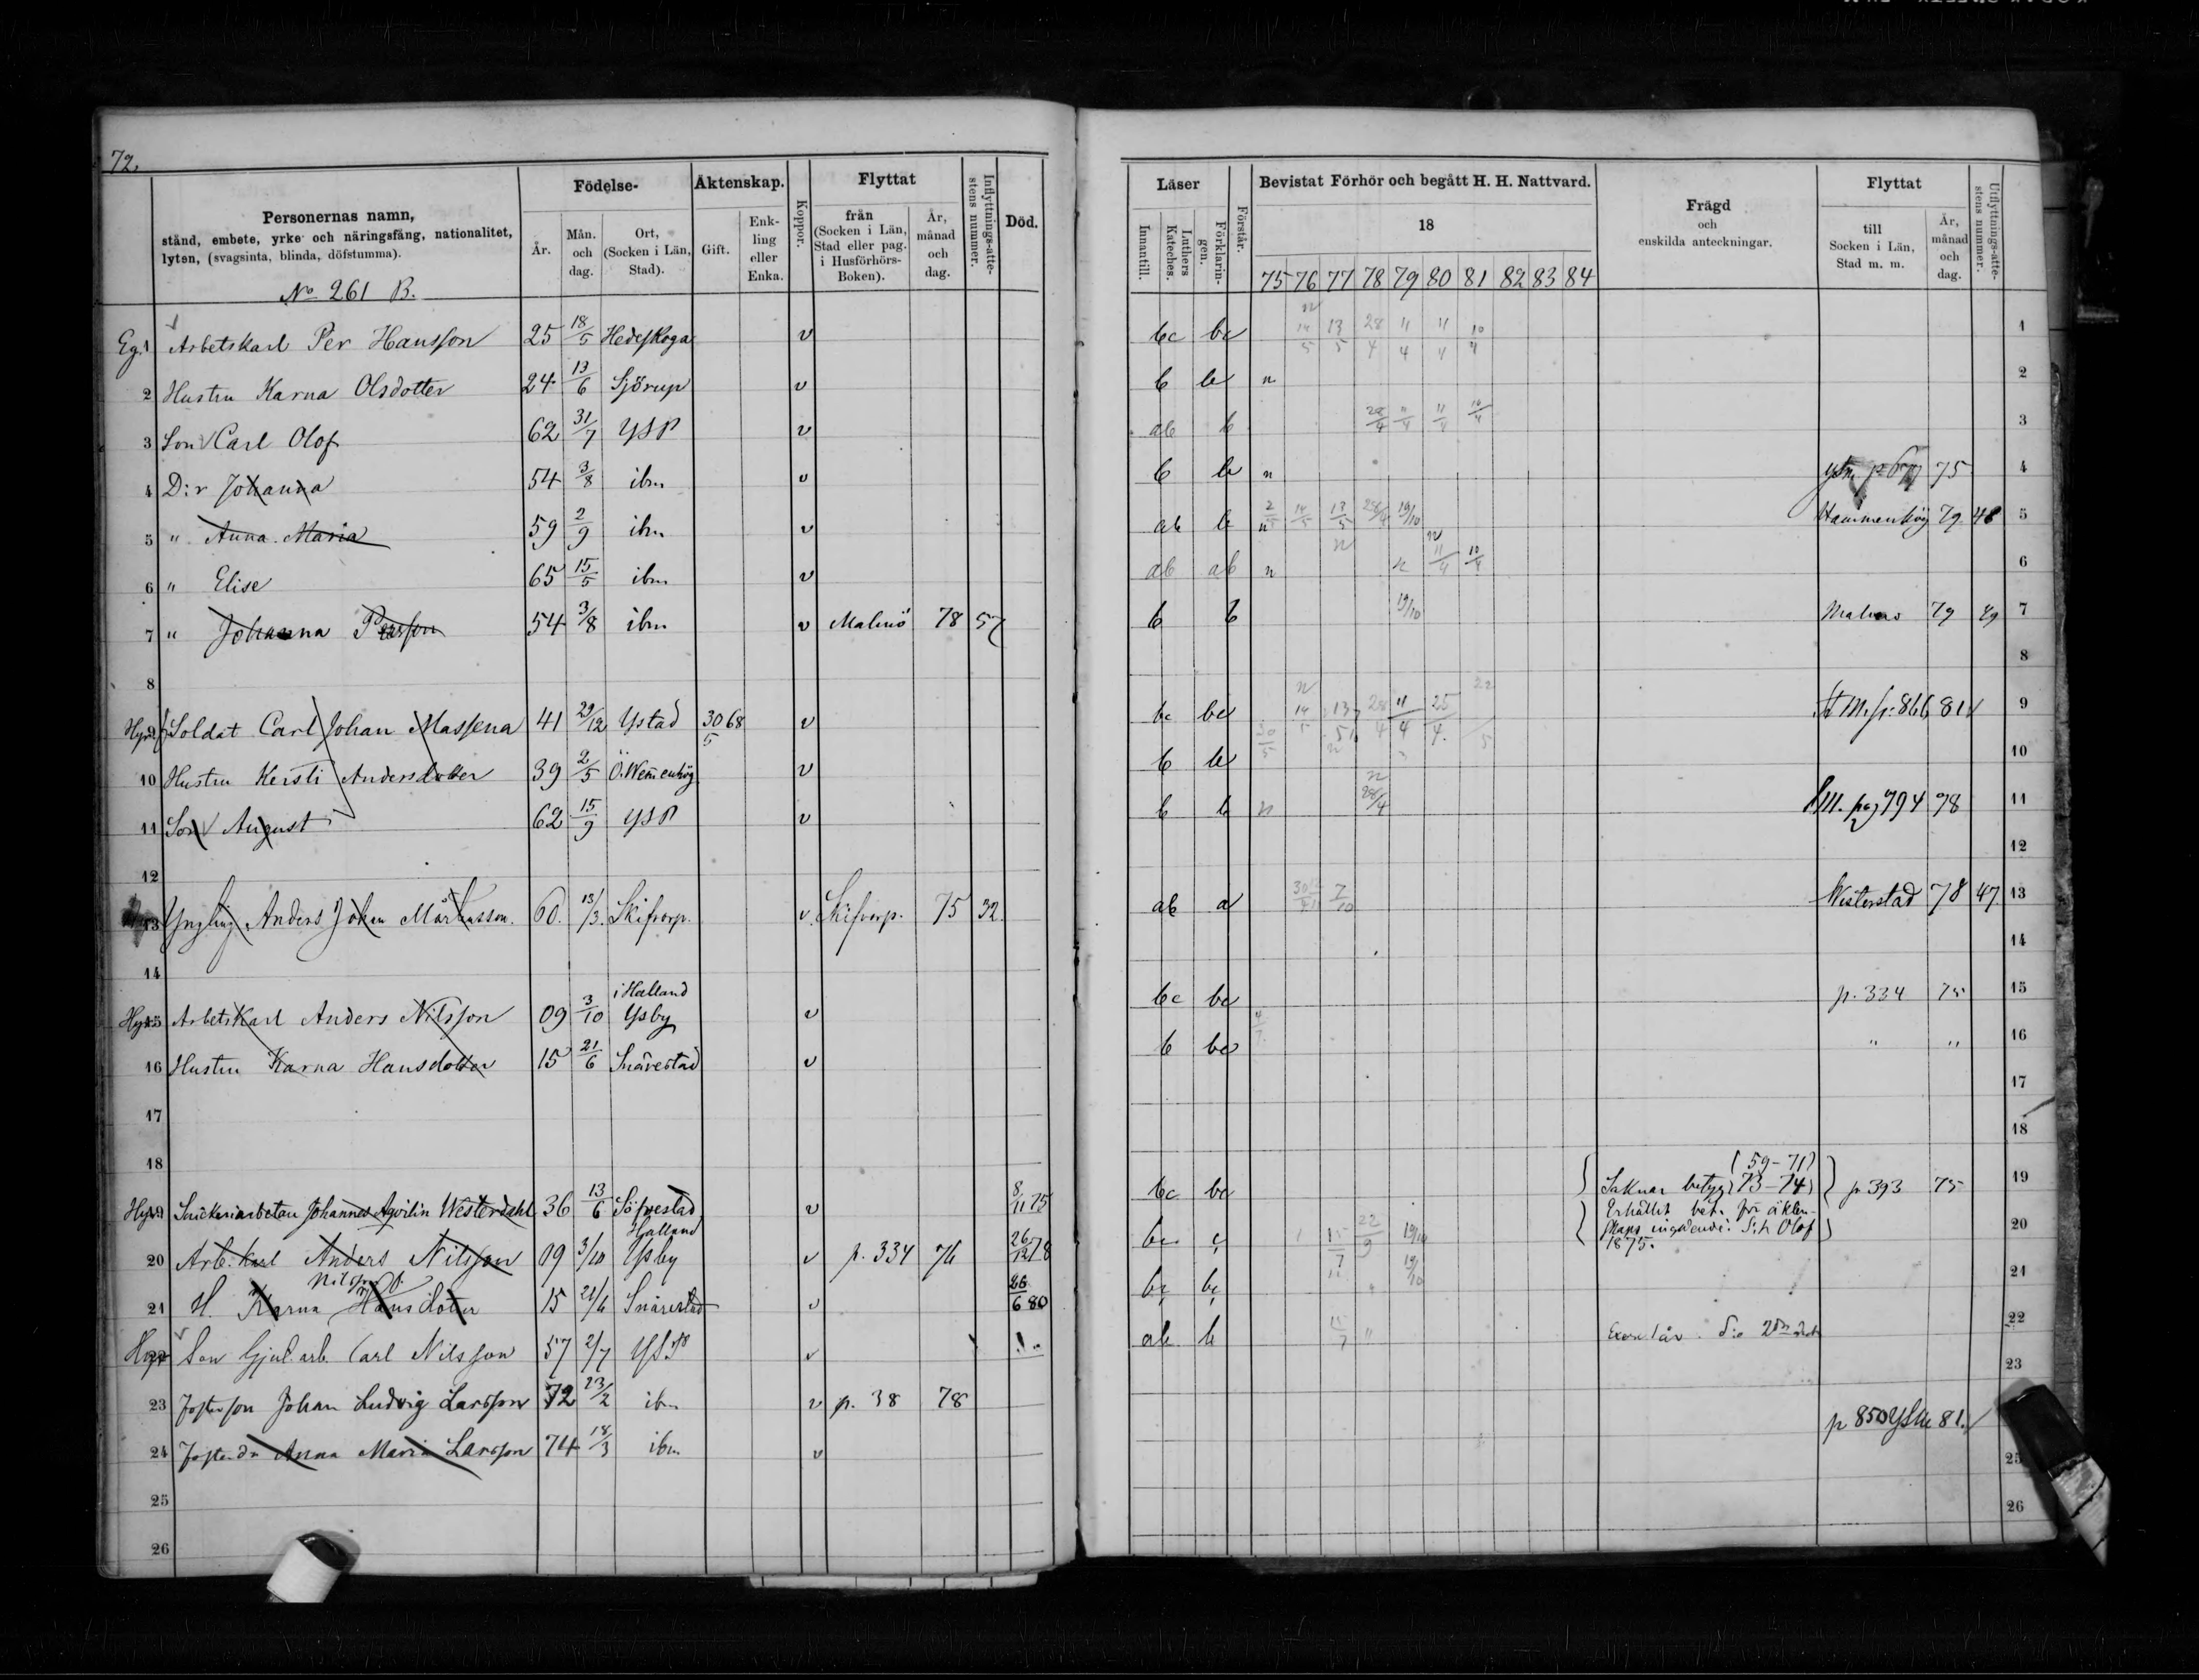 72.
Personernas namn,
stånd, embete, yrke och näringsfång, nationalitet,
lyten, (svagsinta, blinda, döfstumma).
Födelse-
År.
Mån. och dag.
Ort, (Socken i Län, Stad).
Äktenskap.
Gift.
Enkling eller Enka.
Koppor.
Flyttat
från (Socken i Län, Stad eller pag. i Husförhörs-Boken).
År, månad och dag.
Inflyttnings-attestens nummer.
Död.
Läser
Innantill.
Luthers Kateches.
Förklaringen.
Förstår.
Bevistat Förhör och begått H. H. Nattvard.
18
75 76 77 78 79 80 81 82 83 84
Frägd
och
enskilda anteckningar.
Flyttat
till Socken i Län, Stad m. m.
År, månad och dag.
Utflyttnings-attestens nummer.
No 261 B.
Eg. 1 Arbetskarl Per Hansson 25 18/5 Hedeskoga v bc bc 14/5 13/5 28/4 11/4 11/4 10/4 1
2 Hustru Karna Olsdotter 24 13/6 Sjörup v b b n 2
3 Son Carl Olof 62 31/7 YSP v ab b 28/4 11/4 11/4 10/4 3
4 D:r Johanna 54 3/8 ibm v b b n 75 4
5 " Anna Maria 59 2/9 ibm v ab b n 14/5 13/5 28/4 19/10 Hammenhög 79 48 5
6 " Elise 65 15/5 ibm v ab ab n n 11/4 10/4 6
7 " Johanna Persson 54 3/8 ibm v Malmö 78 57 b b 19/10 Malmö 79 89 7
8 8
9 Soldat Carl Johan Massena 41 29/12 Ystad 30/5 68 v bc bc 14/5 13/5 28/4 11/4 25/4 p. 866 81 9
10 Hustru Kersti Andersdotter 39 2/5 Ö. Wemenhög v b b 10
11 Son August 62 15/9 YSP v b b n 28/4 pag 794 78 11
12 12
13 Yngling Anders Johan Mårtensson. 60. 13/3. Skifvarp. v. Skifvarp. 75 32 ab a 7/10 Westerstad 78 47 13
14 14
Hyr. 15 Arbetskarl Anders Nilsson 09 3/10 i Halland Ysby v bc bc p. 334 75 15
16 Hustru Karna Hansdotter 15 21/6 Snårestad v b bc " " 16
17 17
18 18
Hyr. 19 Snickeriarbetare Johannes Westerdahl 36 13/6 Söfvestad v 8/11 75 bc bc Saknar betyg (59-71) (73-74) p 393 75 19
Erhållit bet. för äkten-
skaps ingående. S:t Olof
1875.
20 Arb.karl Anders Nilsson 09 3/10 Halland Ysby v p. 334 76 26/12 78 bc c 15/7 22/9 19/10 20
21 H. Karna Hansdotter 15 21/6 Snårestad v 26/6 80 bc bc 19/10 21
Hyr 22 Son Gjut.arb. Carl Nilsson 57 2/7 YSP v ab b 15/7 22
23 Fosterson Johan Ludvig Larsson 72 23/2 ibm v p. 38 78 23
24 Foster dr Anna Maria Larsson 74 18/3 ibm v p 850 81.
25 25
26 26